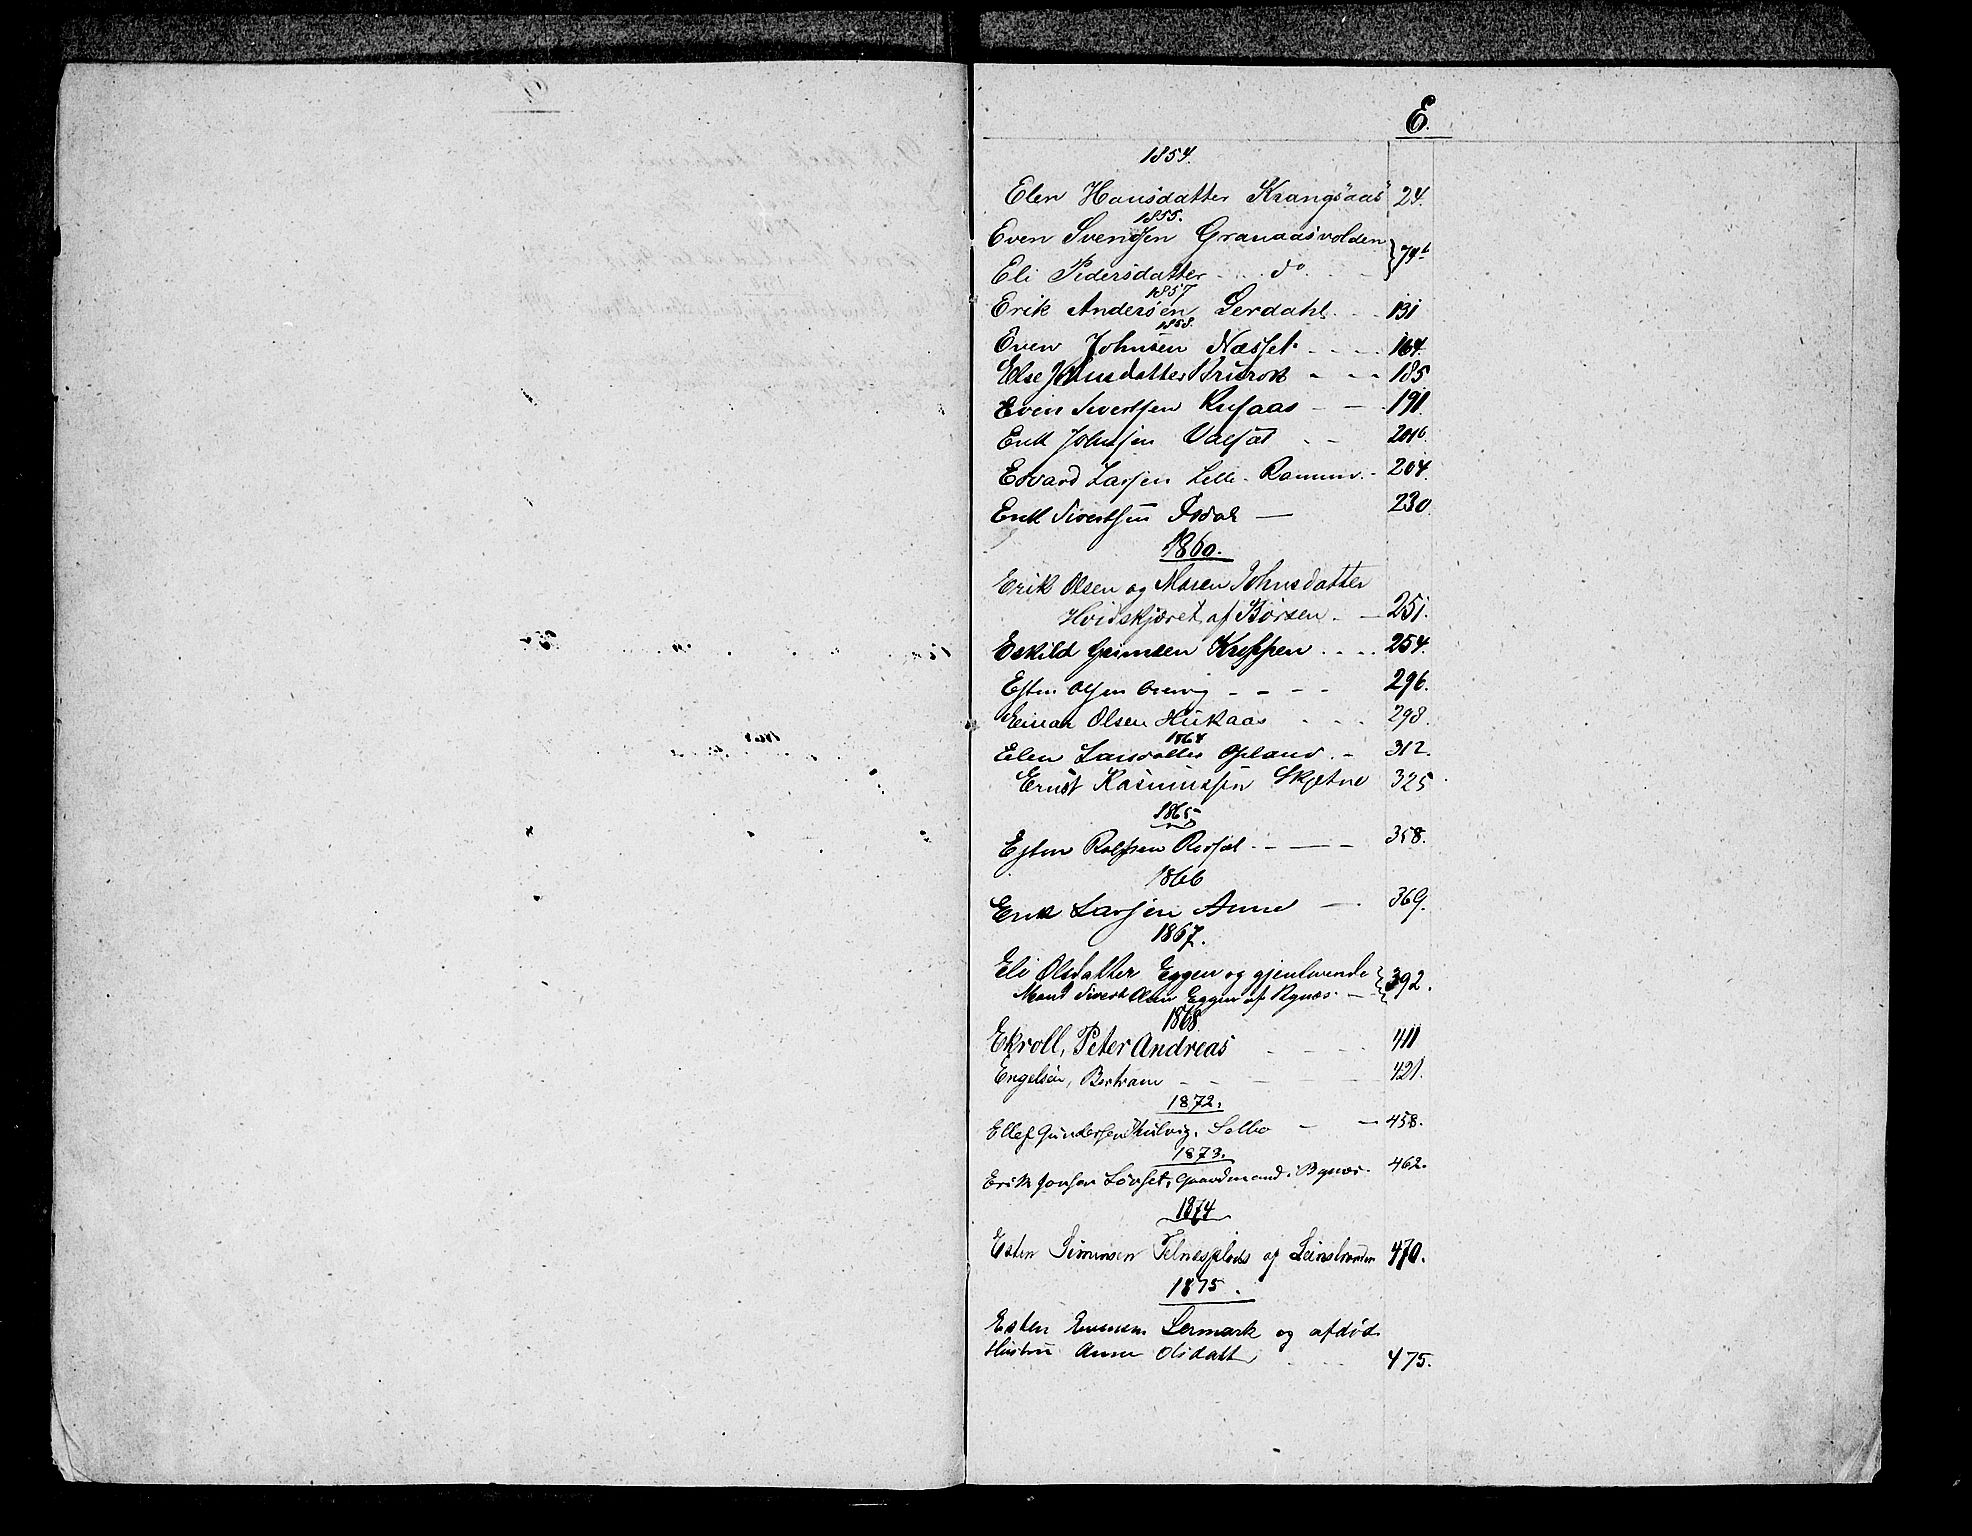 E.
1854.
Elen Hansdatter Krangsaas 24.
1855.
Even Svendsen Granaasvolden
Eli Pedersdatter do. 74b
1857
Erik Andersen Lerdahl 131
1858.
Even Johnsen Næsset 164.
Else Johnsdatter Brurok 185
Even Sivertsen 191
Erik Johnsen Valsæt 201b
Edvard Larsen Lille-Ramm 204.
Erik Sivertsen 230
1860.
Erik Olsen og Maren Johnsdatter
Hvidskjæret af Børsen. 251.
Eskild 254.
Esten Olsen 296.
Einar Olsen Hukaas 298.
1864
Elen Larsdatter Opland. 312.
Ernst Rasmussen Skjetne 325
1865
Esten Rolfsen 358.
1866
Erik Larsen Aune 369.
1867.
Eli Olsdatter Eggen og gjenlevende
Mand Sivert Olsen Eggen af Bynæs. 392.
1868.
Ekroll, Peter Andreas 411
Engelsen, Bertram 421.
1872.
Ellef Gundersen Hulvig, Selbo 458.
1873.
Erik Jonsen Løvset, Gaardmand i Bynæs. 462.
1874
Esten Simonsen Telnesplads af Leinstranden 470.
1875.
Esten Evensen Lermark og afdød
Hustru Anne Olsdatt 475.